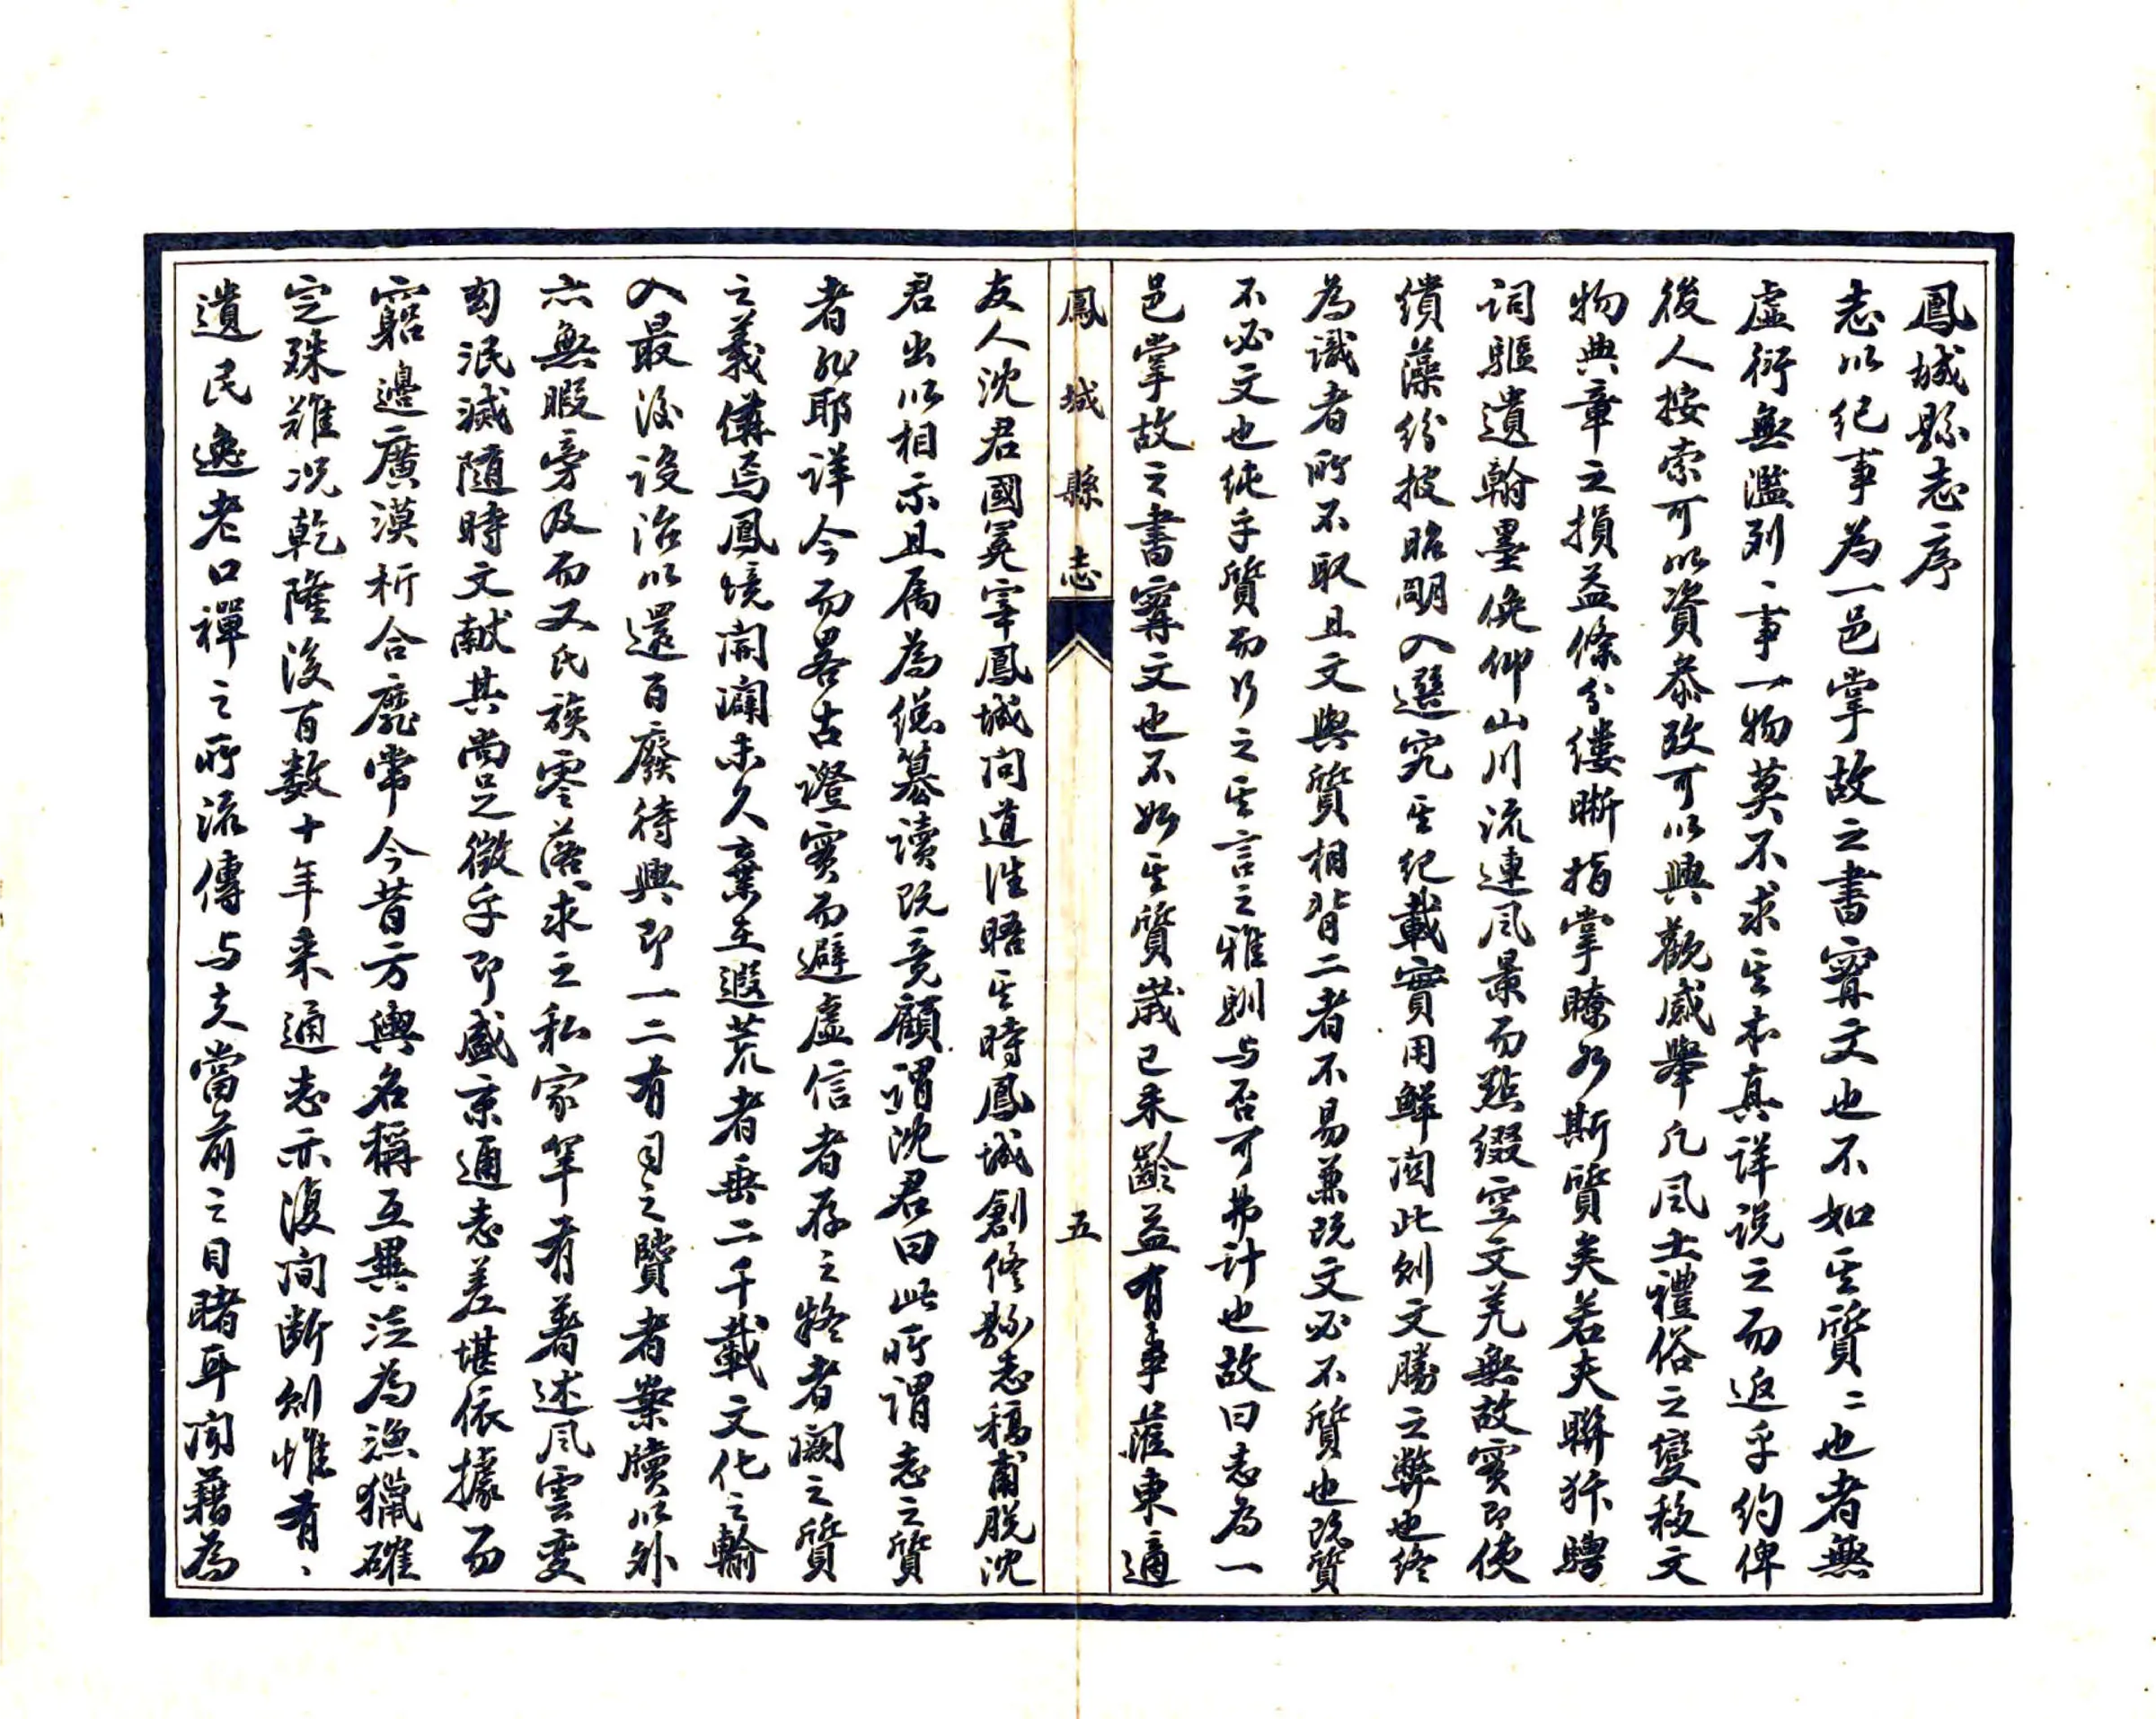 鳳城縣志序
志以紀事為一邑掌故之書寗文也不如其質〻也者無
虛衍無濫列〻事一物莫不求其本真詳说之而返乎约俾
後人按索可以資泰改可以興觀感舉凡風土禮俗之變移文
物典章之損益條分缕晰指掌瞭如斯質矣若夫聯骈騁
词驅遺翰墨俛仰山川流連風景而點缀空文羌無故實即使
缋藻纷披昭朙入選究其纪載實用鮮関此则文勝之弊也终
為識者所不取且文與質相背二者不易兼既文必不質也既質
不必文也纯乎質而行之其言之雅馴与否可弗计也故曰志為一
邑掌故之書寗文也不如其質歲己未齡益有事蒞東適
友人沈君國冕宰鳳城问道往晤其時鳳城創修縣志稿甫脱沈
君出以相示且属為總纂读既竟顧谓沈君曰此所谓志之質
者非耶详今而畧古澄實而避虛信者存之疑者阙之質
之義備焉鳳境闹濶未久棄在遐荒者垂二千載文化之輸
入最後设治以還百廢待興即一二有司之賢者案牍以外
六無暇旁及而又氏族零落求之私家罕有著述風雲变
幻泯滅随時文献其尚足徵乎即盛京通志差堪依據而
窮邊廣漠析合靡常今昔方輿名稱互異泛為渔獵確
定殊难况乾隆後百数十年来通志示復间断则惟有〻
遺民逸老口禪之所流傳与夫當前之目睹耳闻藉為
鳳城縣志
五